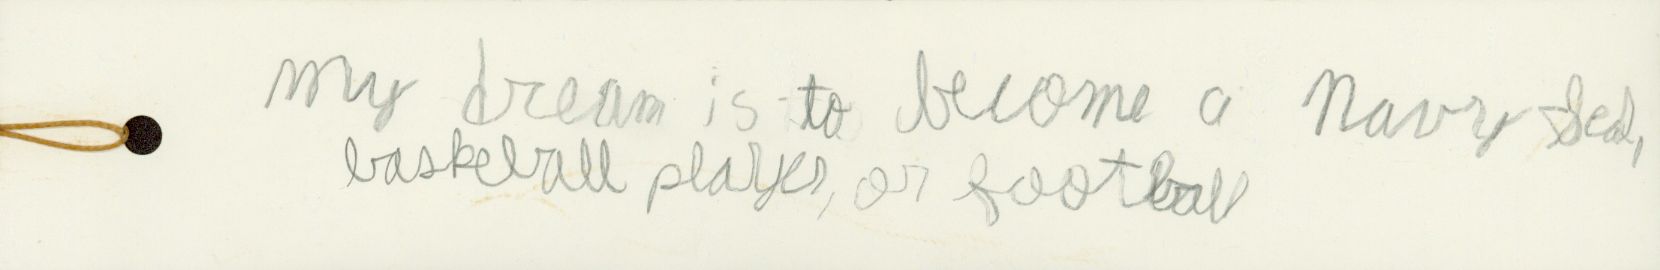 My dream is to become a Navy Seal,
baskeball player, or football